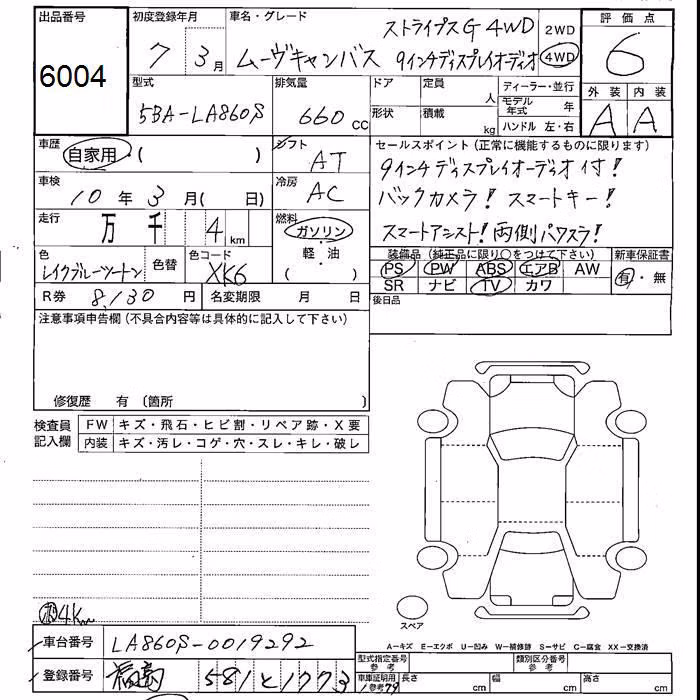 出品番号
6004
初度登録年月
7 3月
車名・グレード
ストライプスG 4WD
ムーヴキャンバス 9インチディスプレイオーディオ
2WD
4WD
評価点
6
外装 内装
A A
型式
5BA-LA860S
排気量
660 cc
ドア
定員
人
形状
積載
kg
ディーラー・並行
モデル年式 年
ハンドル 左・右
車歴
自家用・( )
シフト
AT
車検
10年3月( 日)
冷房
AC
走行
万 千 4 km
燃料
ガソリン
軽・油
( )
色
レイクブルーツートン
色替
色コード
XK6
R券 8,130円
名変期限 月 日
セールスポイント(正常に機能するものに限ります)
9インチディスプレイオーディオ付!
バックカメラ! スマートキー!
スマートアシスト! 両側パワスラ!
装備品(純正品に限り○をつけて下さい)
PS PW ABS エアB AW
SR ナビ TV カワ
新車保証書
有・無
後日品
注意事項申告欄(不具合内容等は具体的に記入して下さい)
修復歴 有 〔箇所 〕
検査員記入欄
FW キズ・飛石・ヒビ割・リペア跡・X要
内装 キズ・汚レ・コゲ・穴・スレ・キレ・破レ
4Km
車台番号 LA860S-0019292
登録番号 581と1773
スペア
A…キズ E…エクボ U…凹み W…補修跡 S…サビ C…腐食 XX…交換済
型式指定番号 参考
類別区分番号 参考
車庫証明用 参考 長さ cm 幅 cm 高さ cm